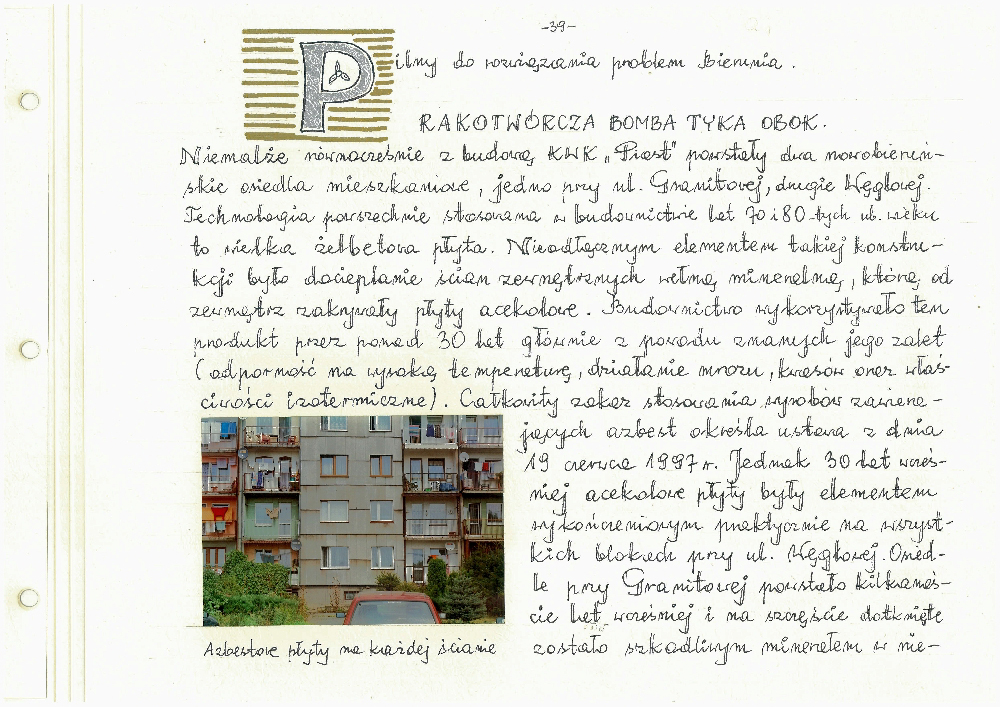 -39-
Pilny do rozwiązania problem Bierunia.
RAKOTWÓRCZA BOMBA TYKA OBOK.
Niemalże równocześnie z budową KWK „Piast" powstały dwa nowobieruń-
skie osiedla mieszkaniowe, jedno przy ul. Granitowej, drugie Węglowej.
Technologia powszechnie stosowana w budownictwie lat 70 i 80-tych ub. wieku
to wielka żelbetowa płyta. Nieodłącznym elementem takiej konstru-
kcji było docieplanie ścian zewnętrznych wełną mineralną, którą od
zewnątrz zakrywały płyty acekolowe. Budownictwo wykorzystywało ten
produkt przez ponad 30 lat głównie z powodu znanych jego zalet
(odporność na wysoką temperaturę, działanie mrozu, kwasów oraz właś-
ciwości izotermiczne). Całkowity zakaz stosowania wyrobów zawiera-
jących azbest określa ustawa z dnia
19 czerwca 1997 r. Jednak 30 lat wcześ-
niej acekolowe płyty były elementem
wykończeniowym praktycznie na wszyst-
kich blokach przy ul. Węglowej. Osied-
le przy Granitowej powstało kilkanaś-
cie lat wcześniej i na szczęście dotknięte
zostało szkodliwym minerałem w nie-
Azbestowe płyty na każdej ścianie